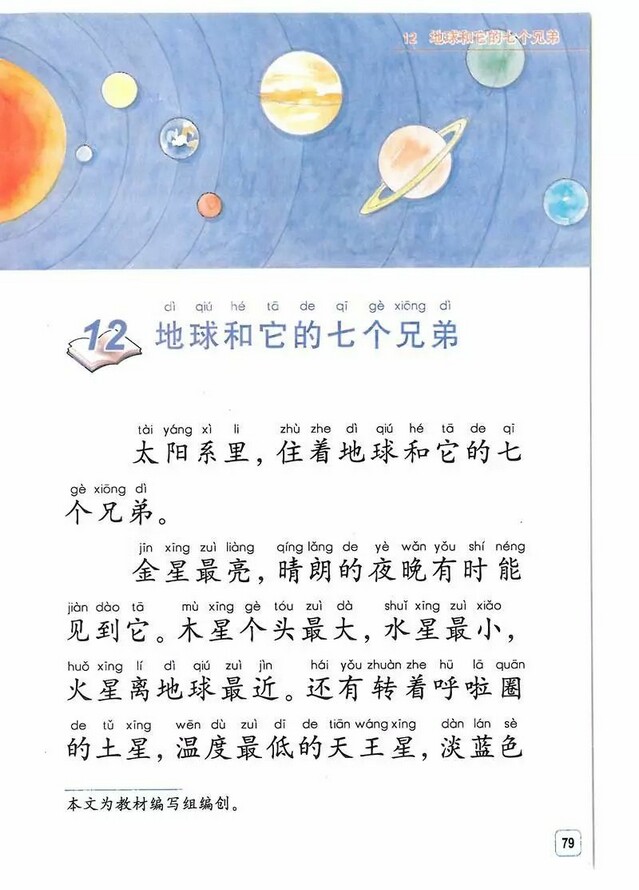 12 地球和它的七个兄弟
dì qiú hé tā de qī gè xiōng dì
12 地球和它的七个兄弟
tài yáng xì li zhù zhe dì qiú hé tā de qī
太阳系里，住着地球和它的七
gè xiōng dì
个兄弟。
jīn xīng zuì liàng qíng lǎng de yè wǎn yǒu shí néng
金星最亮，晴朗的夜晚有时能
jiàn dào tā mù xīng gè tóu zuì dà shuǐ xīng zuì xiǎo
见到它。木星个头最大，水星最小，
huǒ xīng lí dì qiú zuì jìn hái yǒu zhuàn zhe hū lā quān
火星离地球最近。还有转着呼啦圈
de tǔ xīng wēn dù zuì dī de tiān wáng xīng dàn lán sè
的土星，温度最低的天王星，淡蓝色
本文为教材编写组编创。
79